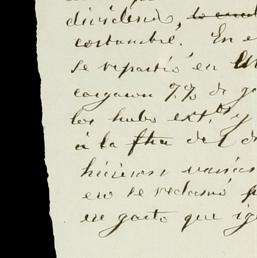 dividendo,
costumbre. En e
se repartió en
cargaron 7% de ga
los hubo ext. y
á la fha de l d
hicieron varias
ero se reclamó
un gasto que ig